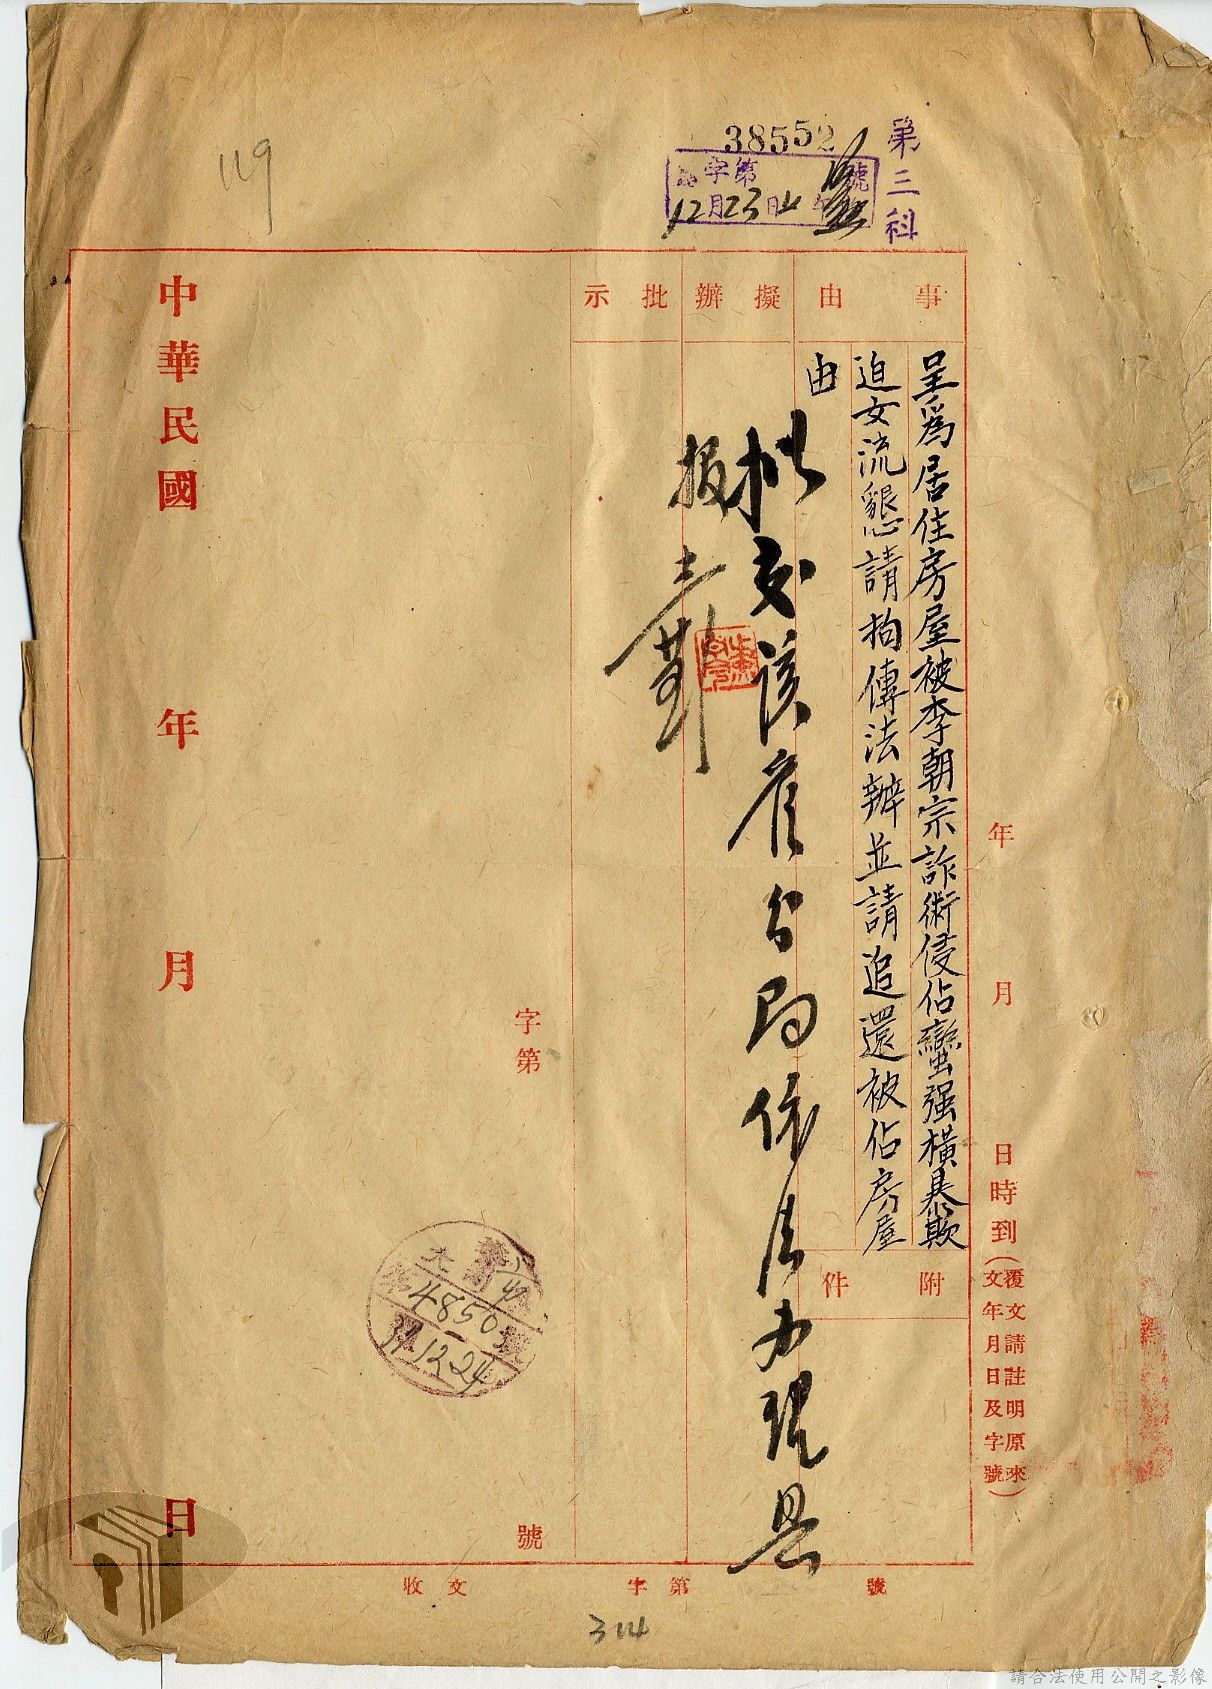 119
38552
第三科
字第 號
12月23日
事由
擬辦
批示
呈為居住房屋被李朝宗詐術侵佔蠻强橫暴欺
迫女流懇請拘傳法辦並請追還被佔房屋
由
擬交該管分局依法办理具
报
附件
年 月 日時到
(覆文請註明原來
文年月日及字號)
字第 號
中華民國 年 月 日
4856
31.12.24
收文 字第 號
314
請合法使用公開之影像